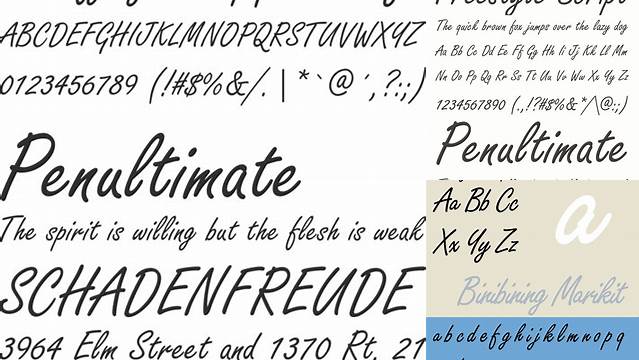 ABCDEFGHIJKLMNOPQRSTUVWXYZ
0123456789 (!#$%&/. | *`@´,?:;)
Penultimate
The spirit is willing but the flesh is weak
SCHADENFREUDE
3964 Elm Street and 1370 Rt. 21
Freestyle Script
The quick brown fox jumps over the lazy dog
Aa Bb Cc Dd Ee Ff Gg Hh Ii Jj Kk Ll Mm
Nn Oo Pp Qq Rr Ss Tt Uu Vv Ww Xx Yy Zz
1234567890 (.,!?#$%&*/\@:;)
Penultimate
Aa Bb Cc
Xx Yy Zz
a
Binibining Marikit
abcdefghijklmnopq